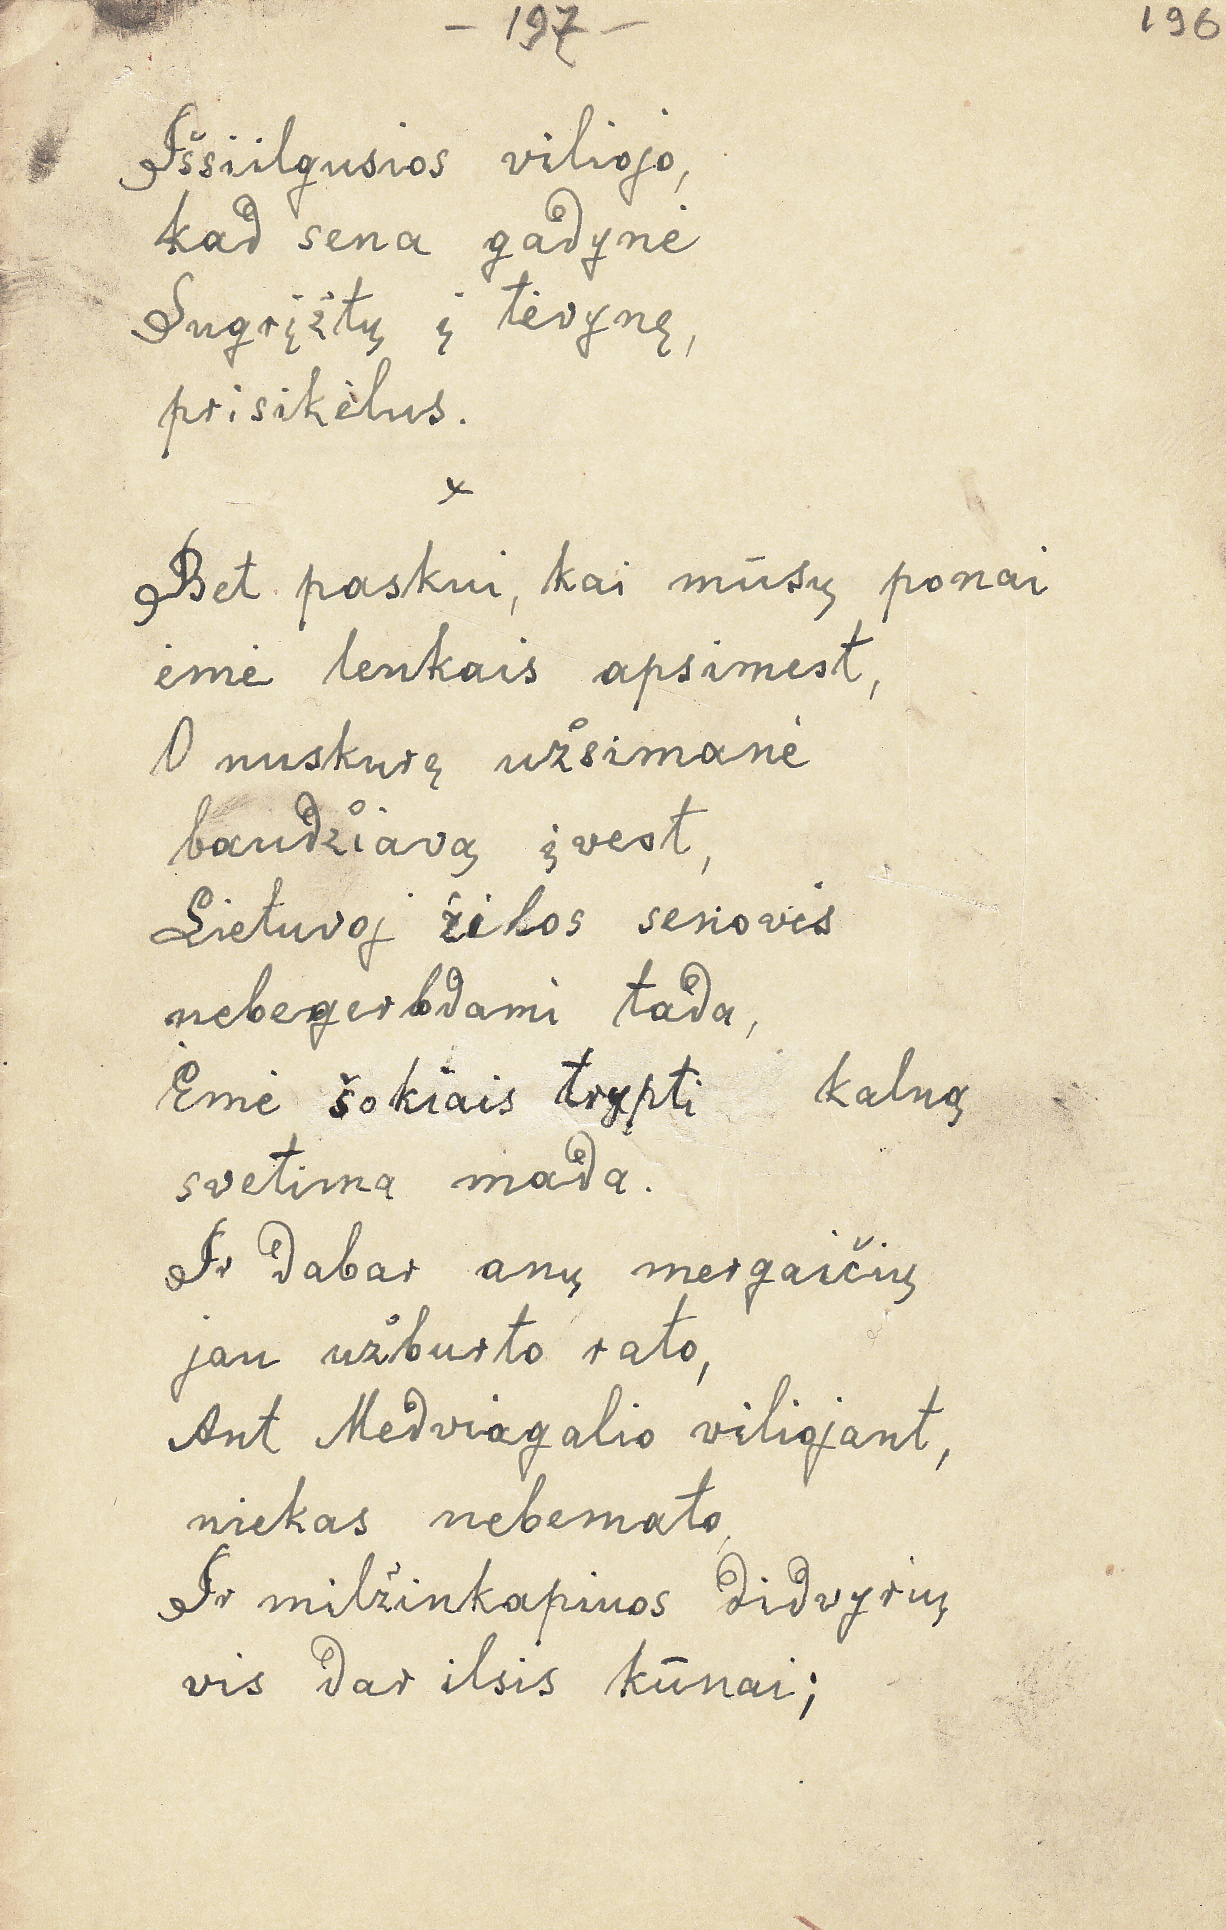 - 197 -
196
Išsiilgusios viliojo,
kad sena gadynė
Sugrįžtų į tėvynę,
prisikėlus.
x
Bet paskui, kai mūsų ponai
ėmė lenkais apsimest,
O nuskurę užsimanė
baudžiavą įvest,
Lietuvoj žilos senovės
nebegerbdami tada,
Ėmė šokiais trypti kalną
svetima mada.
Ir dabar anų mergaičių
jau užburto rato,
Ant Medviagalio viliojant,
niekas nebemato,
Ir milžinkapiuos didvyrių
vis dar ilsis kūnai;